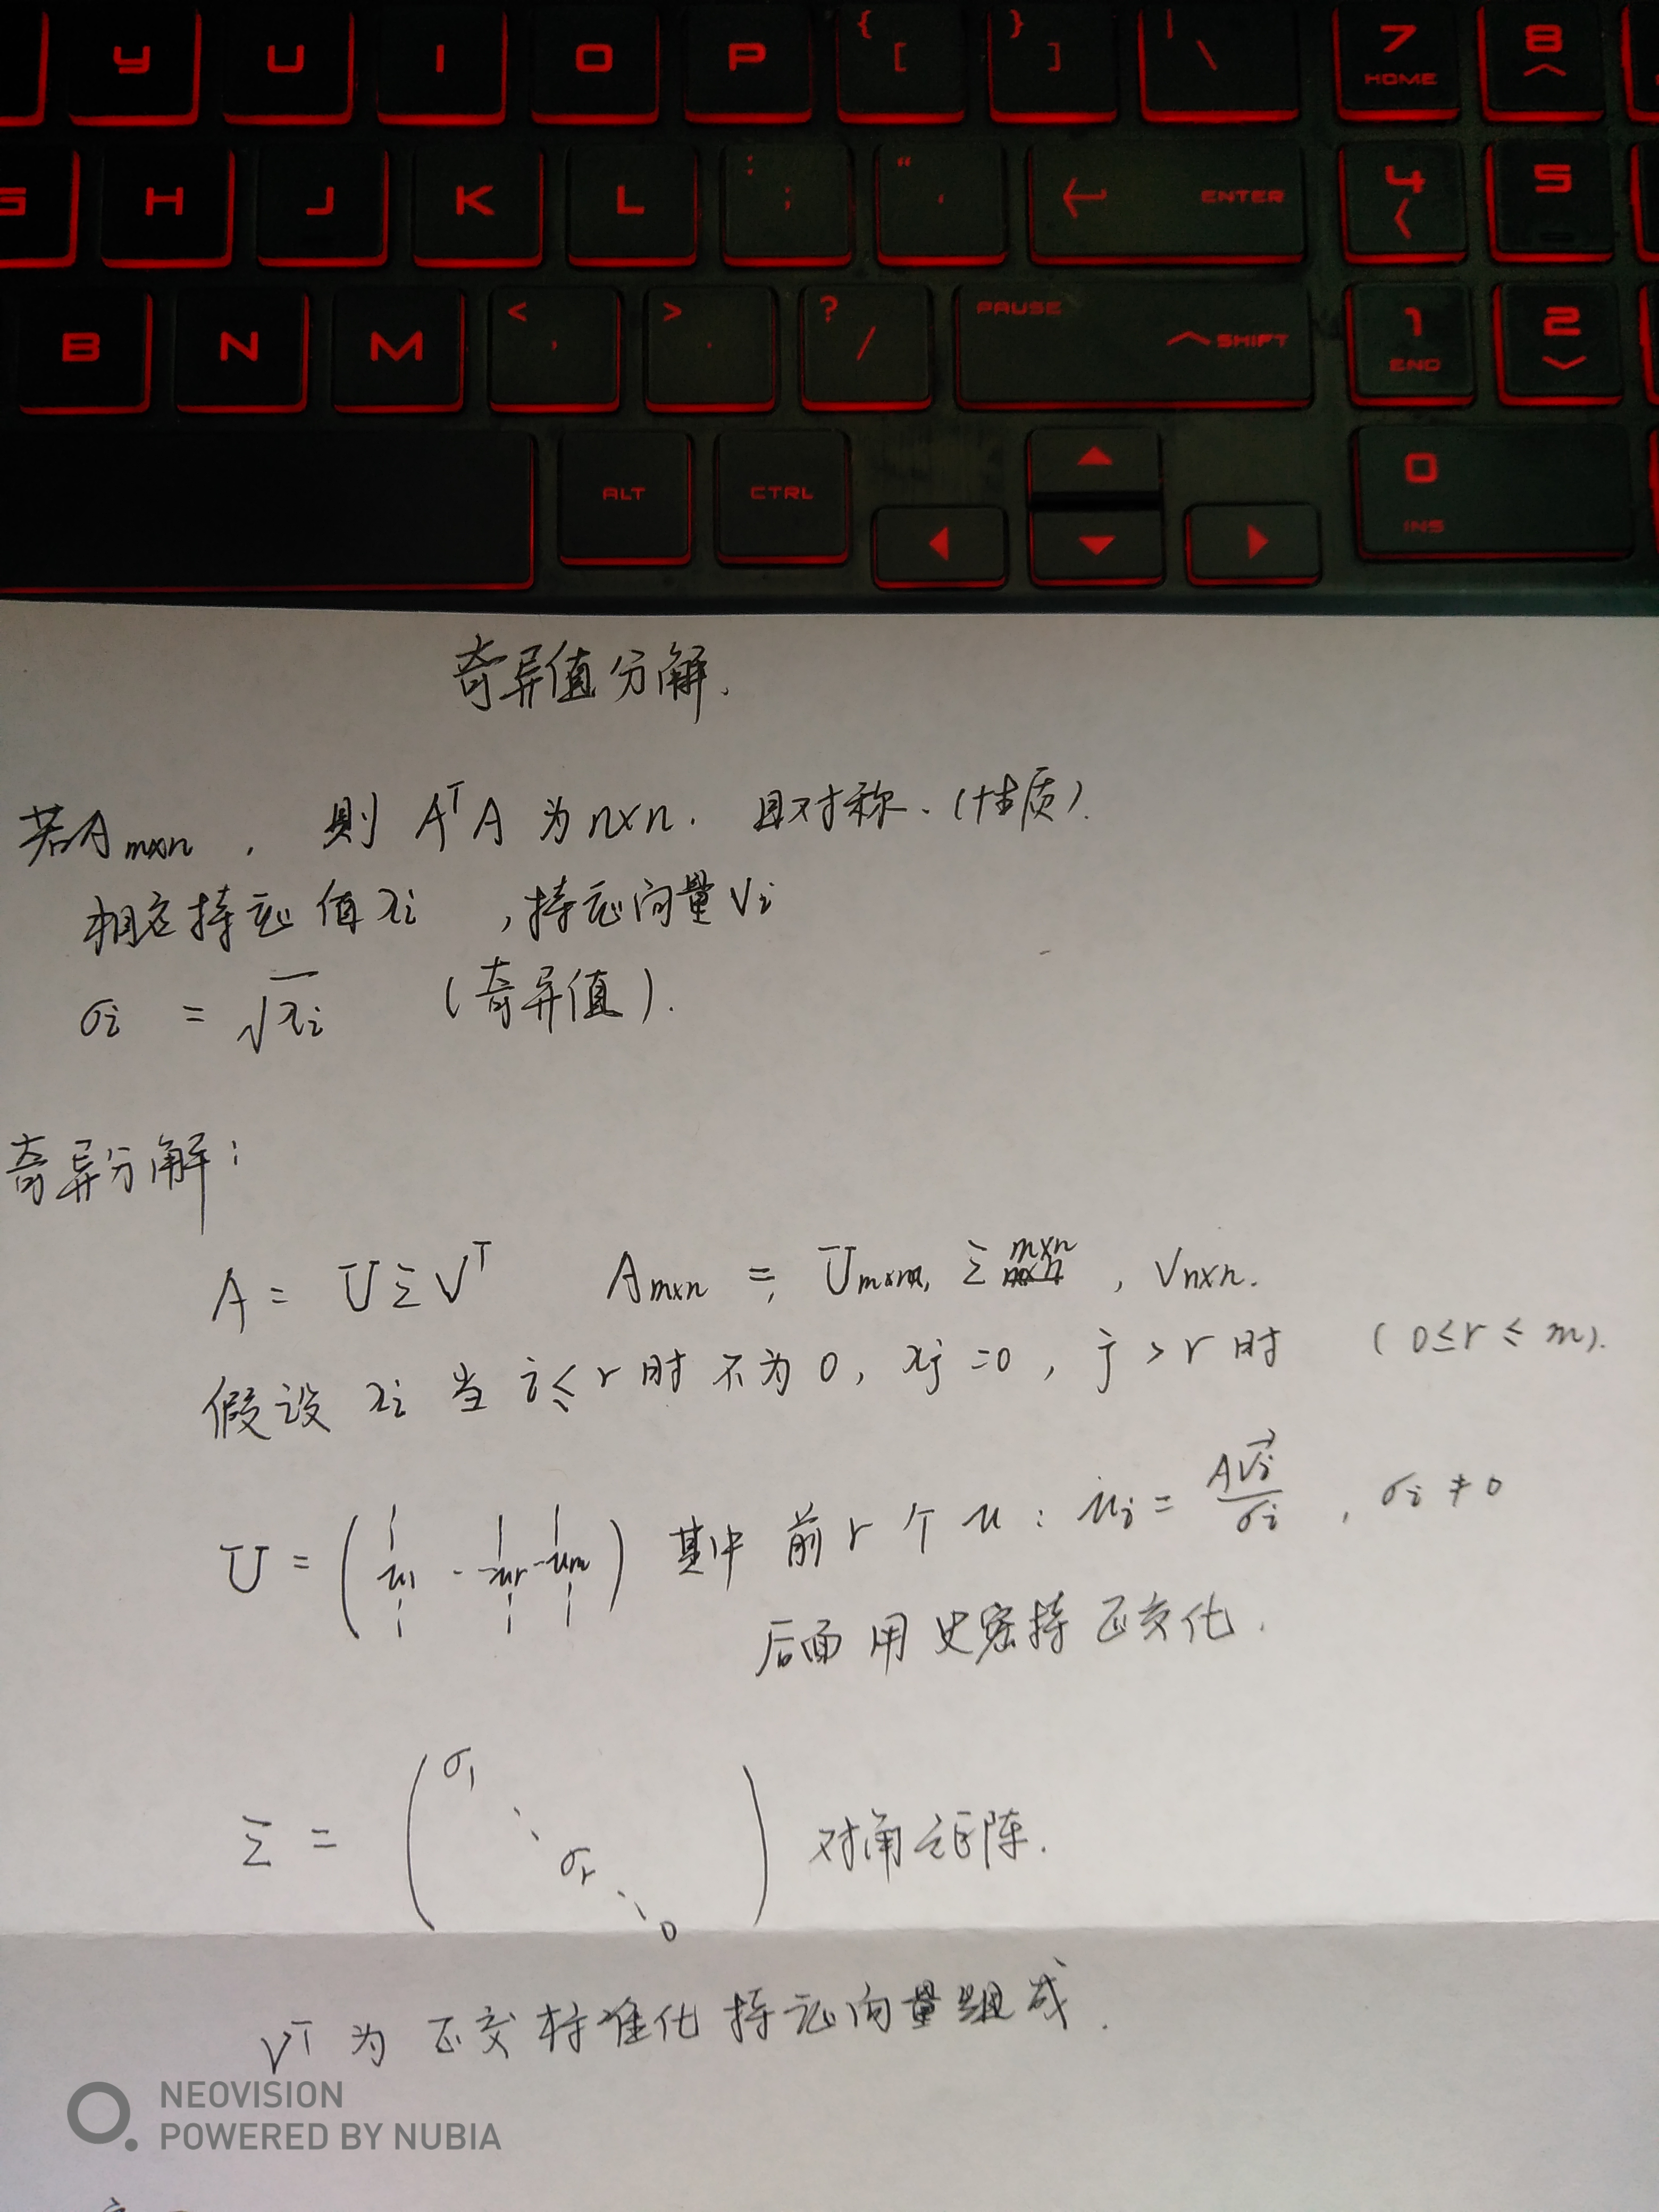 Y U I O P { [ } ] | \ 7 HOME 8
G H J K L : ; " ' ENTER 4 5
B N M < , > . ? / PAUSE SHIFT 1 END 2
ALT CTRL 0 INS
奇异值分解.
若A_{m×n}, 则 A^T A 为 n×n. 且对称.(性质).
相应特征值 λ_i ,特征向量 V_i
σ_i = √λ_i (奇异值).
奇异分解:
A = U Σ V^T A_{m×n} = U_{m×m}, Σ_{m×n}, V_{n×n}.
假设 λ_i 当 i≤r 时不为 0, λ_j =0, j > r 时 (0≤r≤m).
U = (u_1 - - u_r - u_m) 其中 前 r 个 u: u_i = Av_i/σ_i , σ_i ≠ 0
后面用史密特正交化.
Σ = (σ_1 ⋱ σ_r ⋱ 0) 对角矩阵.
V^T 为 正交标准化特征向量组成.
NEOVISION
POWERED BY NUBIA